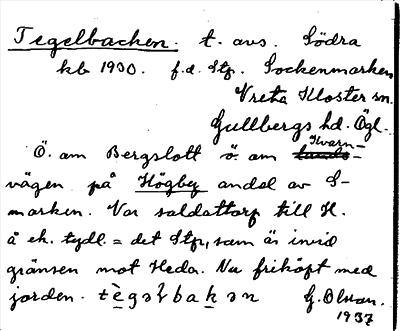 Tegelbacken. t. avs. Södra
kb 1930. f.d. Stp. Sockenmarken
Vreta Kloster sn.
Gullbergs hd. Ögl.
Ö. om Bergslott ö. om Kvarn-
vägen på Högby andel av S-
marken. Var soldattorp till H.
å ek. tydl. = det Stp, som är invid
gränsen mot Heda. Nu friköpt med
jorden. G. Olson.
1937